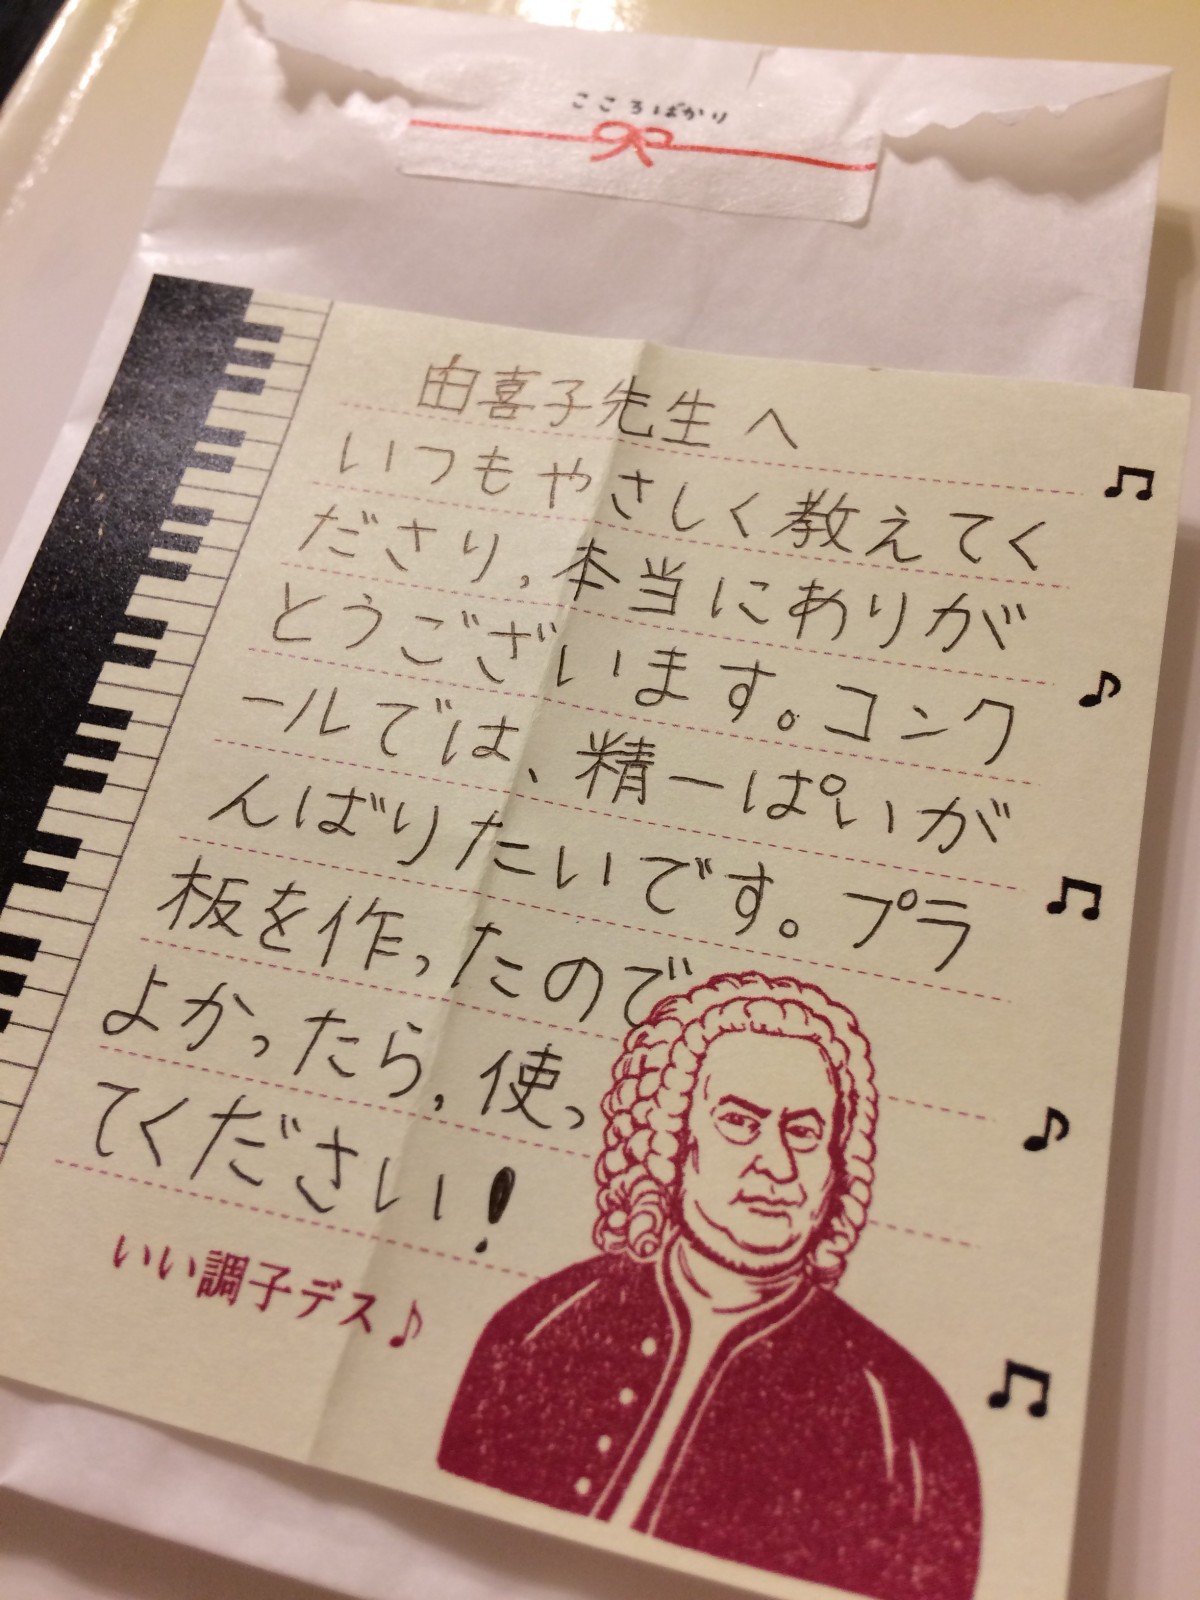 こころばかり
由喜子先生へ
いつもやさしく教えてく
ださり，本当にありが
とうございます。コンク
ールでは、精一ぱいが
んばりたいです。プラ
板を作ったので
よかったら，使っ
てください！
いい調子デス♪